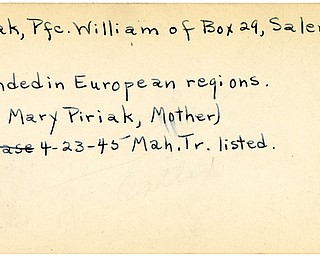 ak, Pfc. William of Box 29, Salem
nded in European regions.
Mary Piriak, Mother)
ase 4-23-45 Mah. Tr. listed.